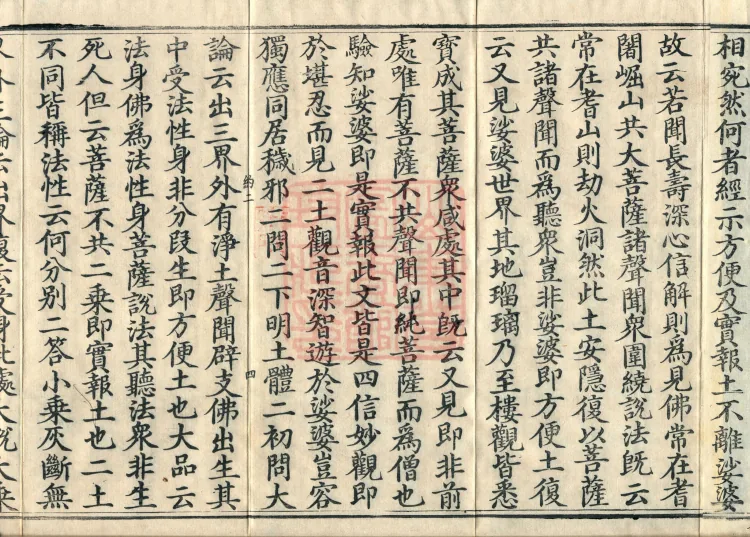 相宛然何者經示方便及實報土不離娑婆
故云若聞長壽深心信解則爲見佛常在耆
闍崛山共大菩薩諸聲聞衆圍繞說法旣云
常在耆山則劫火洞然此土安隱復以菩薩
共諸聲聞而爲聽衆豈非娑婆即方便土復
云又見娑婆世界其地瑠璃乃至樓觀皆悉
寶成其菩薩衆咸處其中旣云又見即非前
處唯有菩薩不共聲聞即純菩薩而爲僧也
驗知娑婆即是實報此文皆是四信妙觀即
於堪忍而見二土觀音深智遊於娑婆豈容
獨應同居穢邪三問二下明土體二初問大
四
論云出三界外有淨土聲聞辟支佛出生其
中受法性身非分段生即方便土也大品云
法身佛爲法性身菩薩說法其聽法衆非生
死人但云菩薩不共二乘即實報土也二土
不同皆稱法性云何分別二答小乘灰斷無